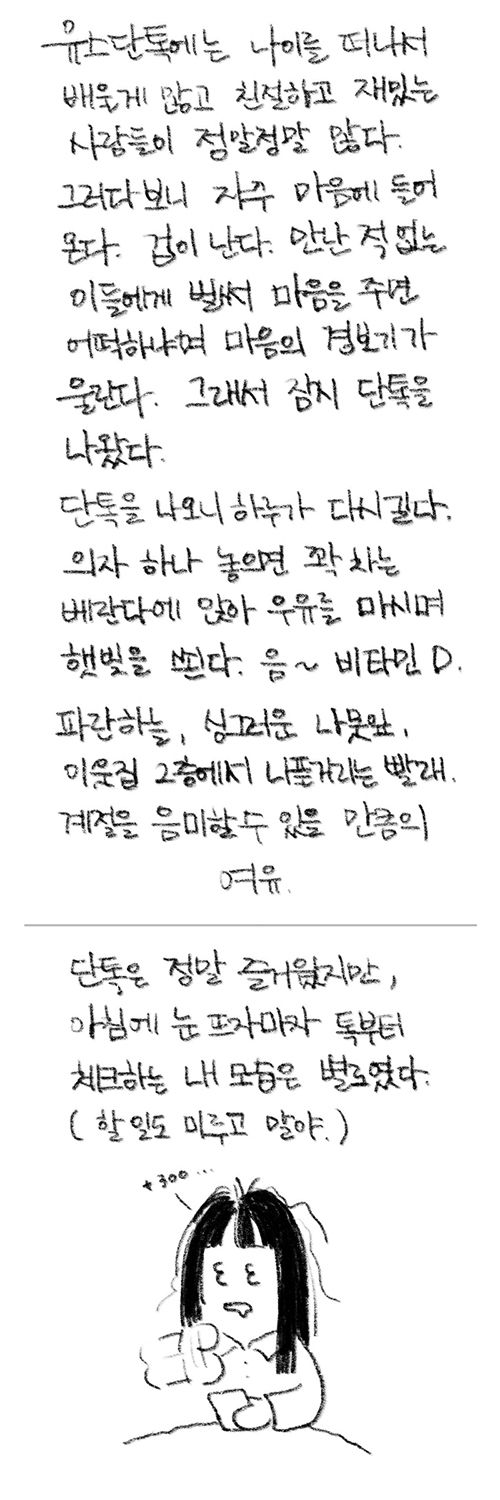 유스단톡에는 나이를 떠나서
배울게 많고 친절하고 재밌는
사람들이 정말정말 많다.
그러다보니 자주 마음에 들어
온다. 겁이 난다. 만난 적 없는
이들에게 벌써 마음을 주면
어떡하냐며 마음의 경보기가
울린다. 그래서 잠시 단톡을
나왔다.
단톡을 나오니 하루가 다시 길다.
의자 하나 놓으면 꽉 차는
베란다에 앉아 우유를 마시며
햇빛을 쬔다. 음~ 비타민 D.
파란하늘, 싱그러운 나뭇잎,
이웃집 2층에서 나풀거리는 빨래.
계절을 음미할 수 있을 만큼의
여유.
단톡은 정말 즐거웠지만,
아침에 눈 뜨자마자 톡부터
체크하는 내 모습은 별로였다.
(할 일도 미루고 말야.)
+300...